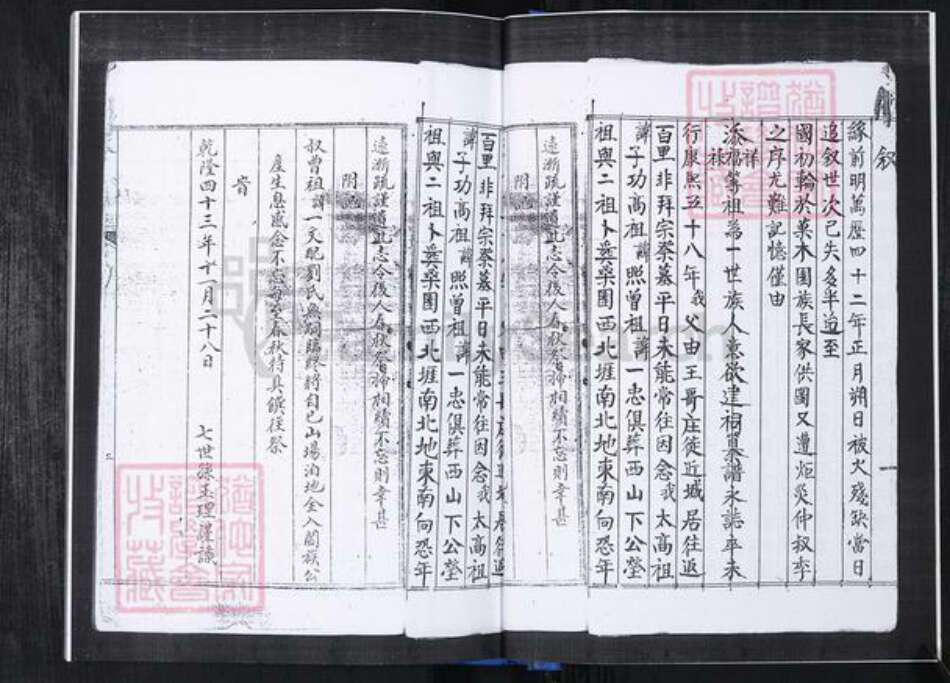 敘
緣前明萬歷四十二年正月朔日被火殘缺當日
追叙世次已失多半迨至
國初輪於菓木園族長家供圖又遭炬災仲叔季
之序尤難記憶僅由
添福祥祿等祖為一世族人意欲建祠纂譜永誌卒未
行康熙五十八年我父由王哥庄徙近城居往返
百里非拜宗祭墓平日未能常往因念我太高祖
諱子功高祖諱照曾祖諱一忠俱葬西山下公塋
祖與二祖卜葬桑園西北堐南北地東南向恐年
附
遠漸疏謹遺此志令後人春秋祭掃相續不忘則幸甚
百里非拜宗祭墓平日未能常往因念我太高祖
諱子功高祖諱照曾祖諱一忠俱葬西山下公塋
祖與二祖卜葬桑園西北堐南北地東南向恐年
遠漸疏謹遺此志令後人春秋祭掃相續不忘則幸甚
附
叔曾祖諱一文配劉氏無嗣臨終將自己山場泊地全入闔族公
產生息感念不忘每至春秋特具饌往祭
乾隆四十三年十一月二十八日 七世孫玉理謹識
一
二